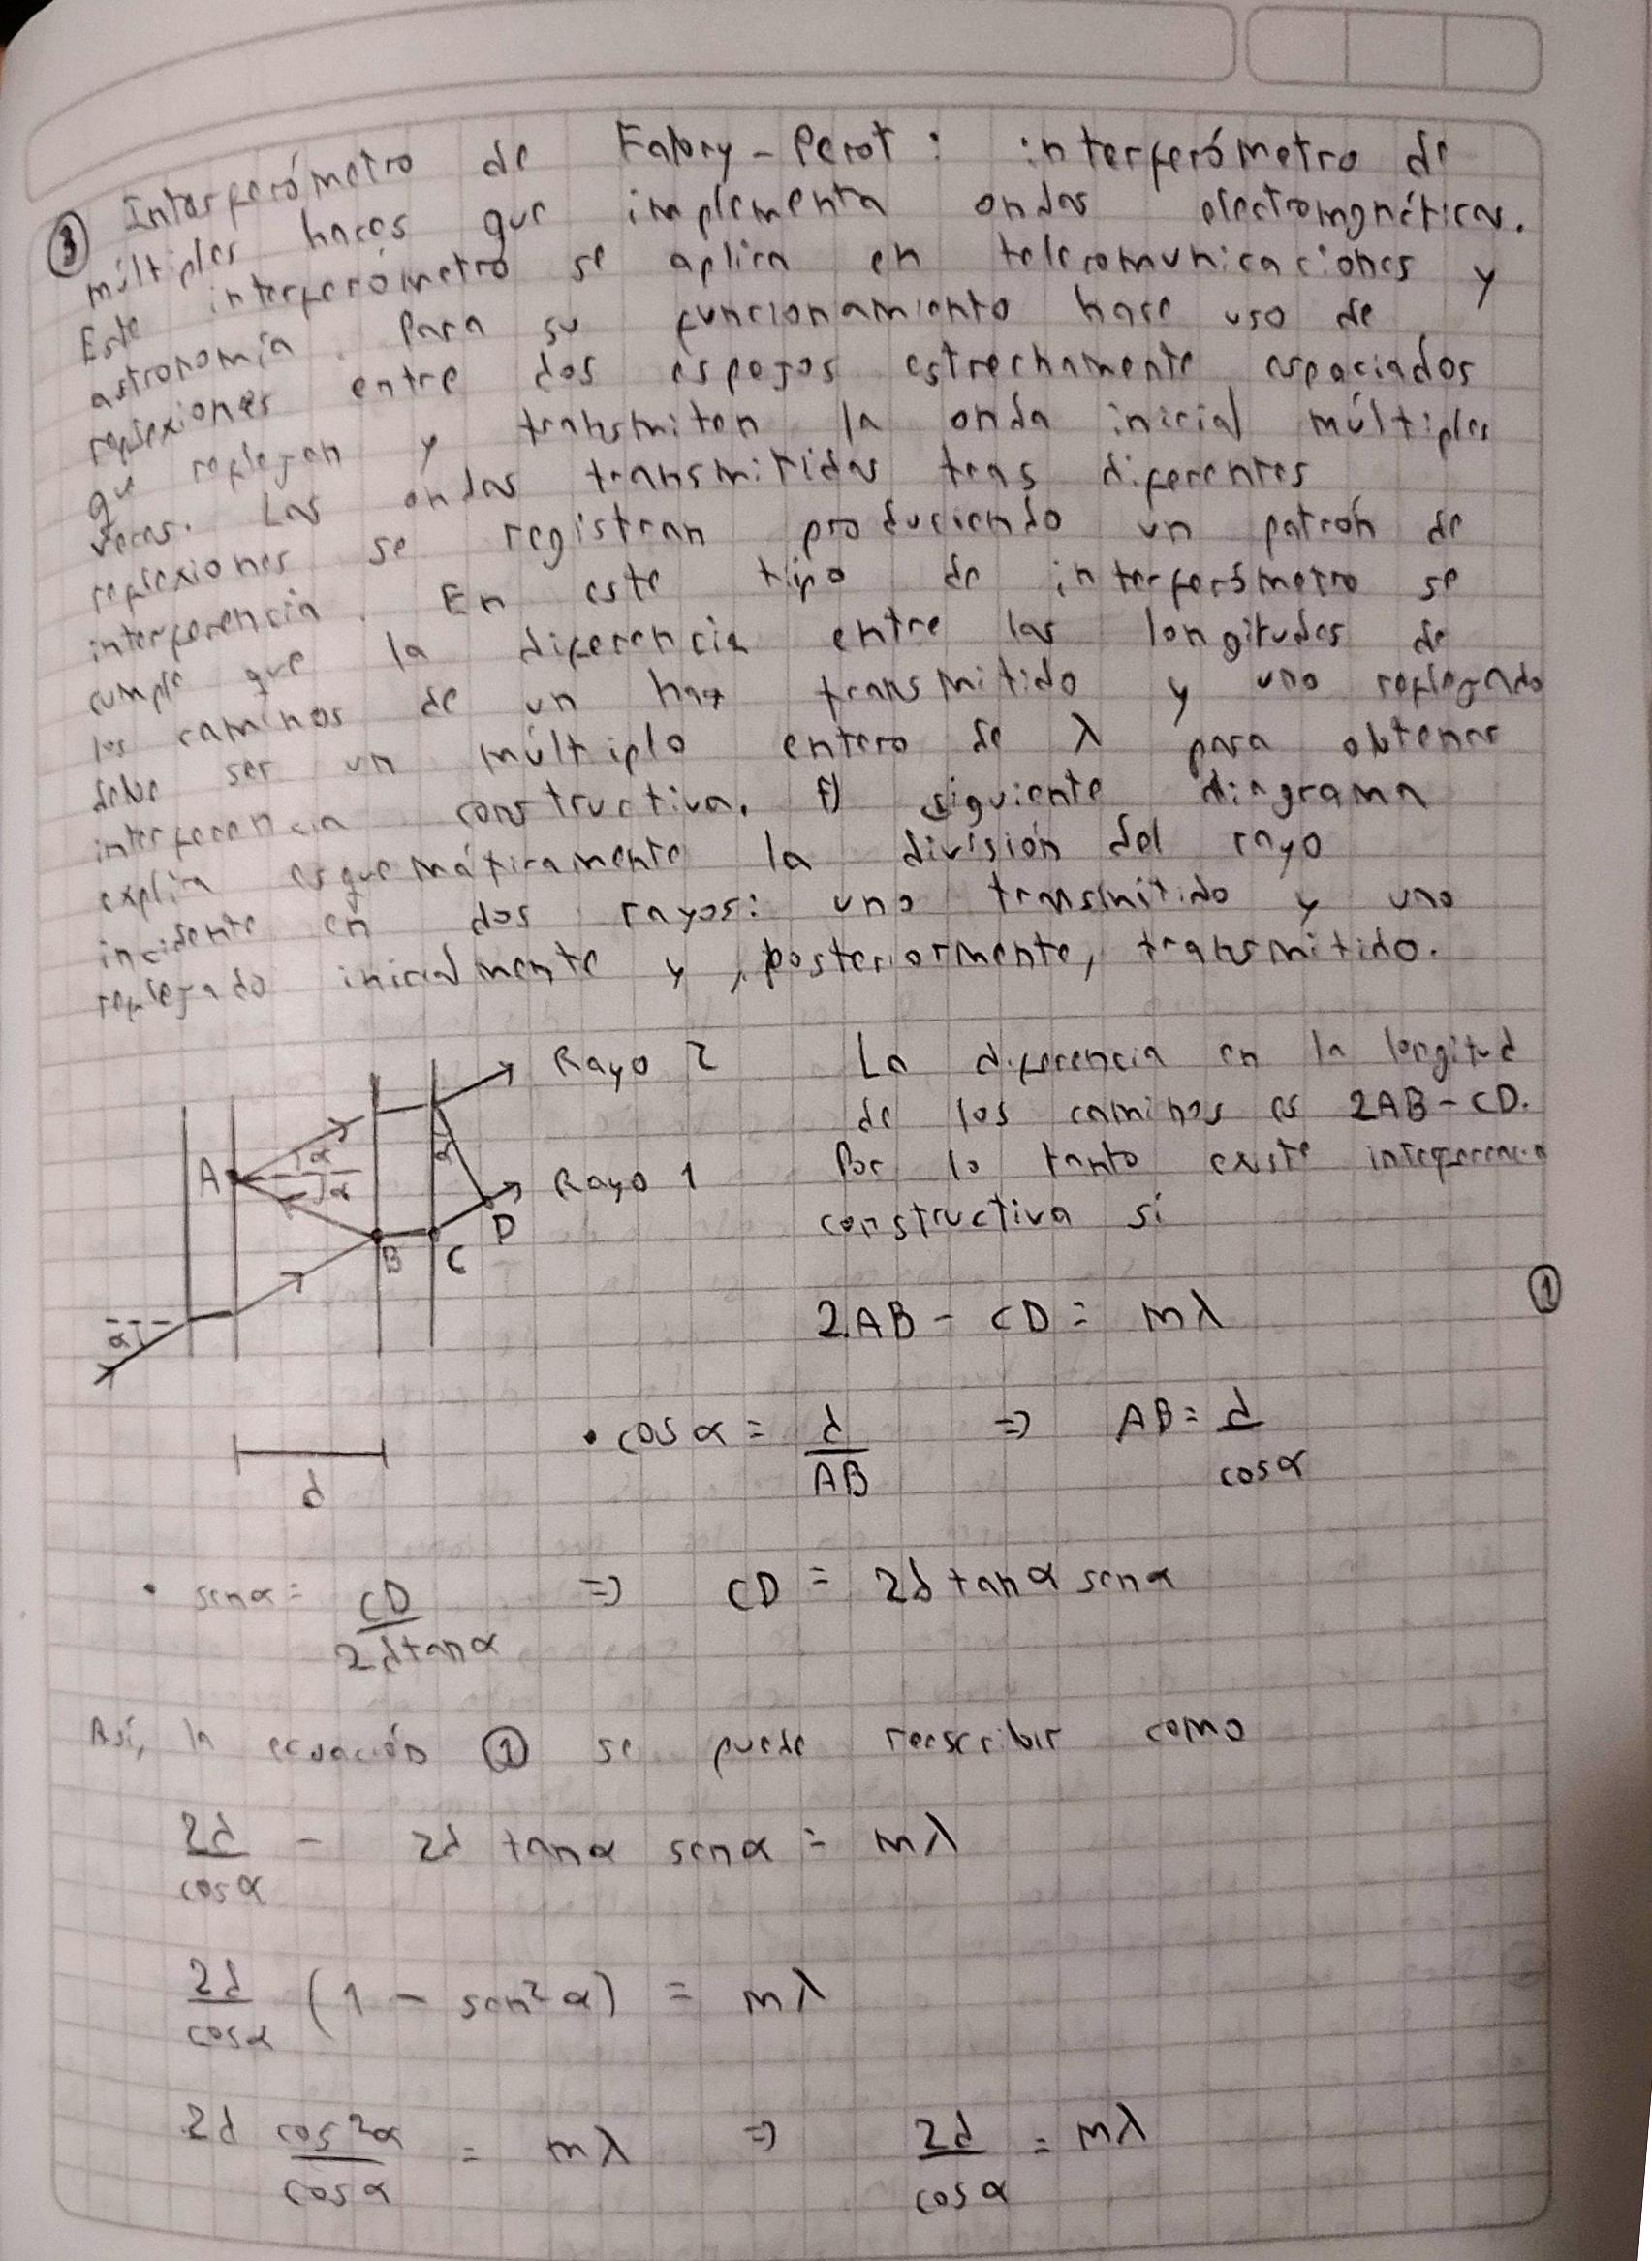 ③ Interferómetro de Fabry-Perot: interferómetro de
múltiples haces que implementa ondas electromgnéticas.
Este interferómetro se aplica en telecomunicaciones y
astronomía. Para su funcionamiento hace uso de
reflexiones entre dos espejos estrechamente espaciados
que reflejan y transmiten la onda inicial múltiples
veces. Las ondas transmitidas tras diferentes
reflexiones se registran produciendo un patrón de
interferencia. En este tipo de interferómetro se
cumple que la diferencia entre las longitudes de
los caminos de un haz transmitido y uno reflejado
debe ser un múltiplo entero de λ para obtener
interferencia constructiva. El siguiente diagrama
explica esquemáticamente la división del rayo
incidente en dos rayos: uno transmitido y uno
reflejado inicialmente y, posteriormente, transmitido.
Rayo 2
Rayo 1
A
α
α
α
B
C
D
α
d
La diferencia en la longitud
de los caminos es 2AB-CD.
Por lo tanto existe interferencia
constructiva si
2AB - CD = mλ ①
• cos α = d/AB => AB = d/cosα
• senα = CD/2dtanα => CD = 2d tanα senα
Así, la ecuación ① se puede reescribir como
2d/cosα - 2d tanα senα = mλ
2d/cosα (1 - sen²α) = mλ
2d cos²α/cosα = mλ => 2d/cosα = mλ